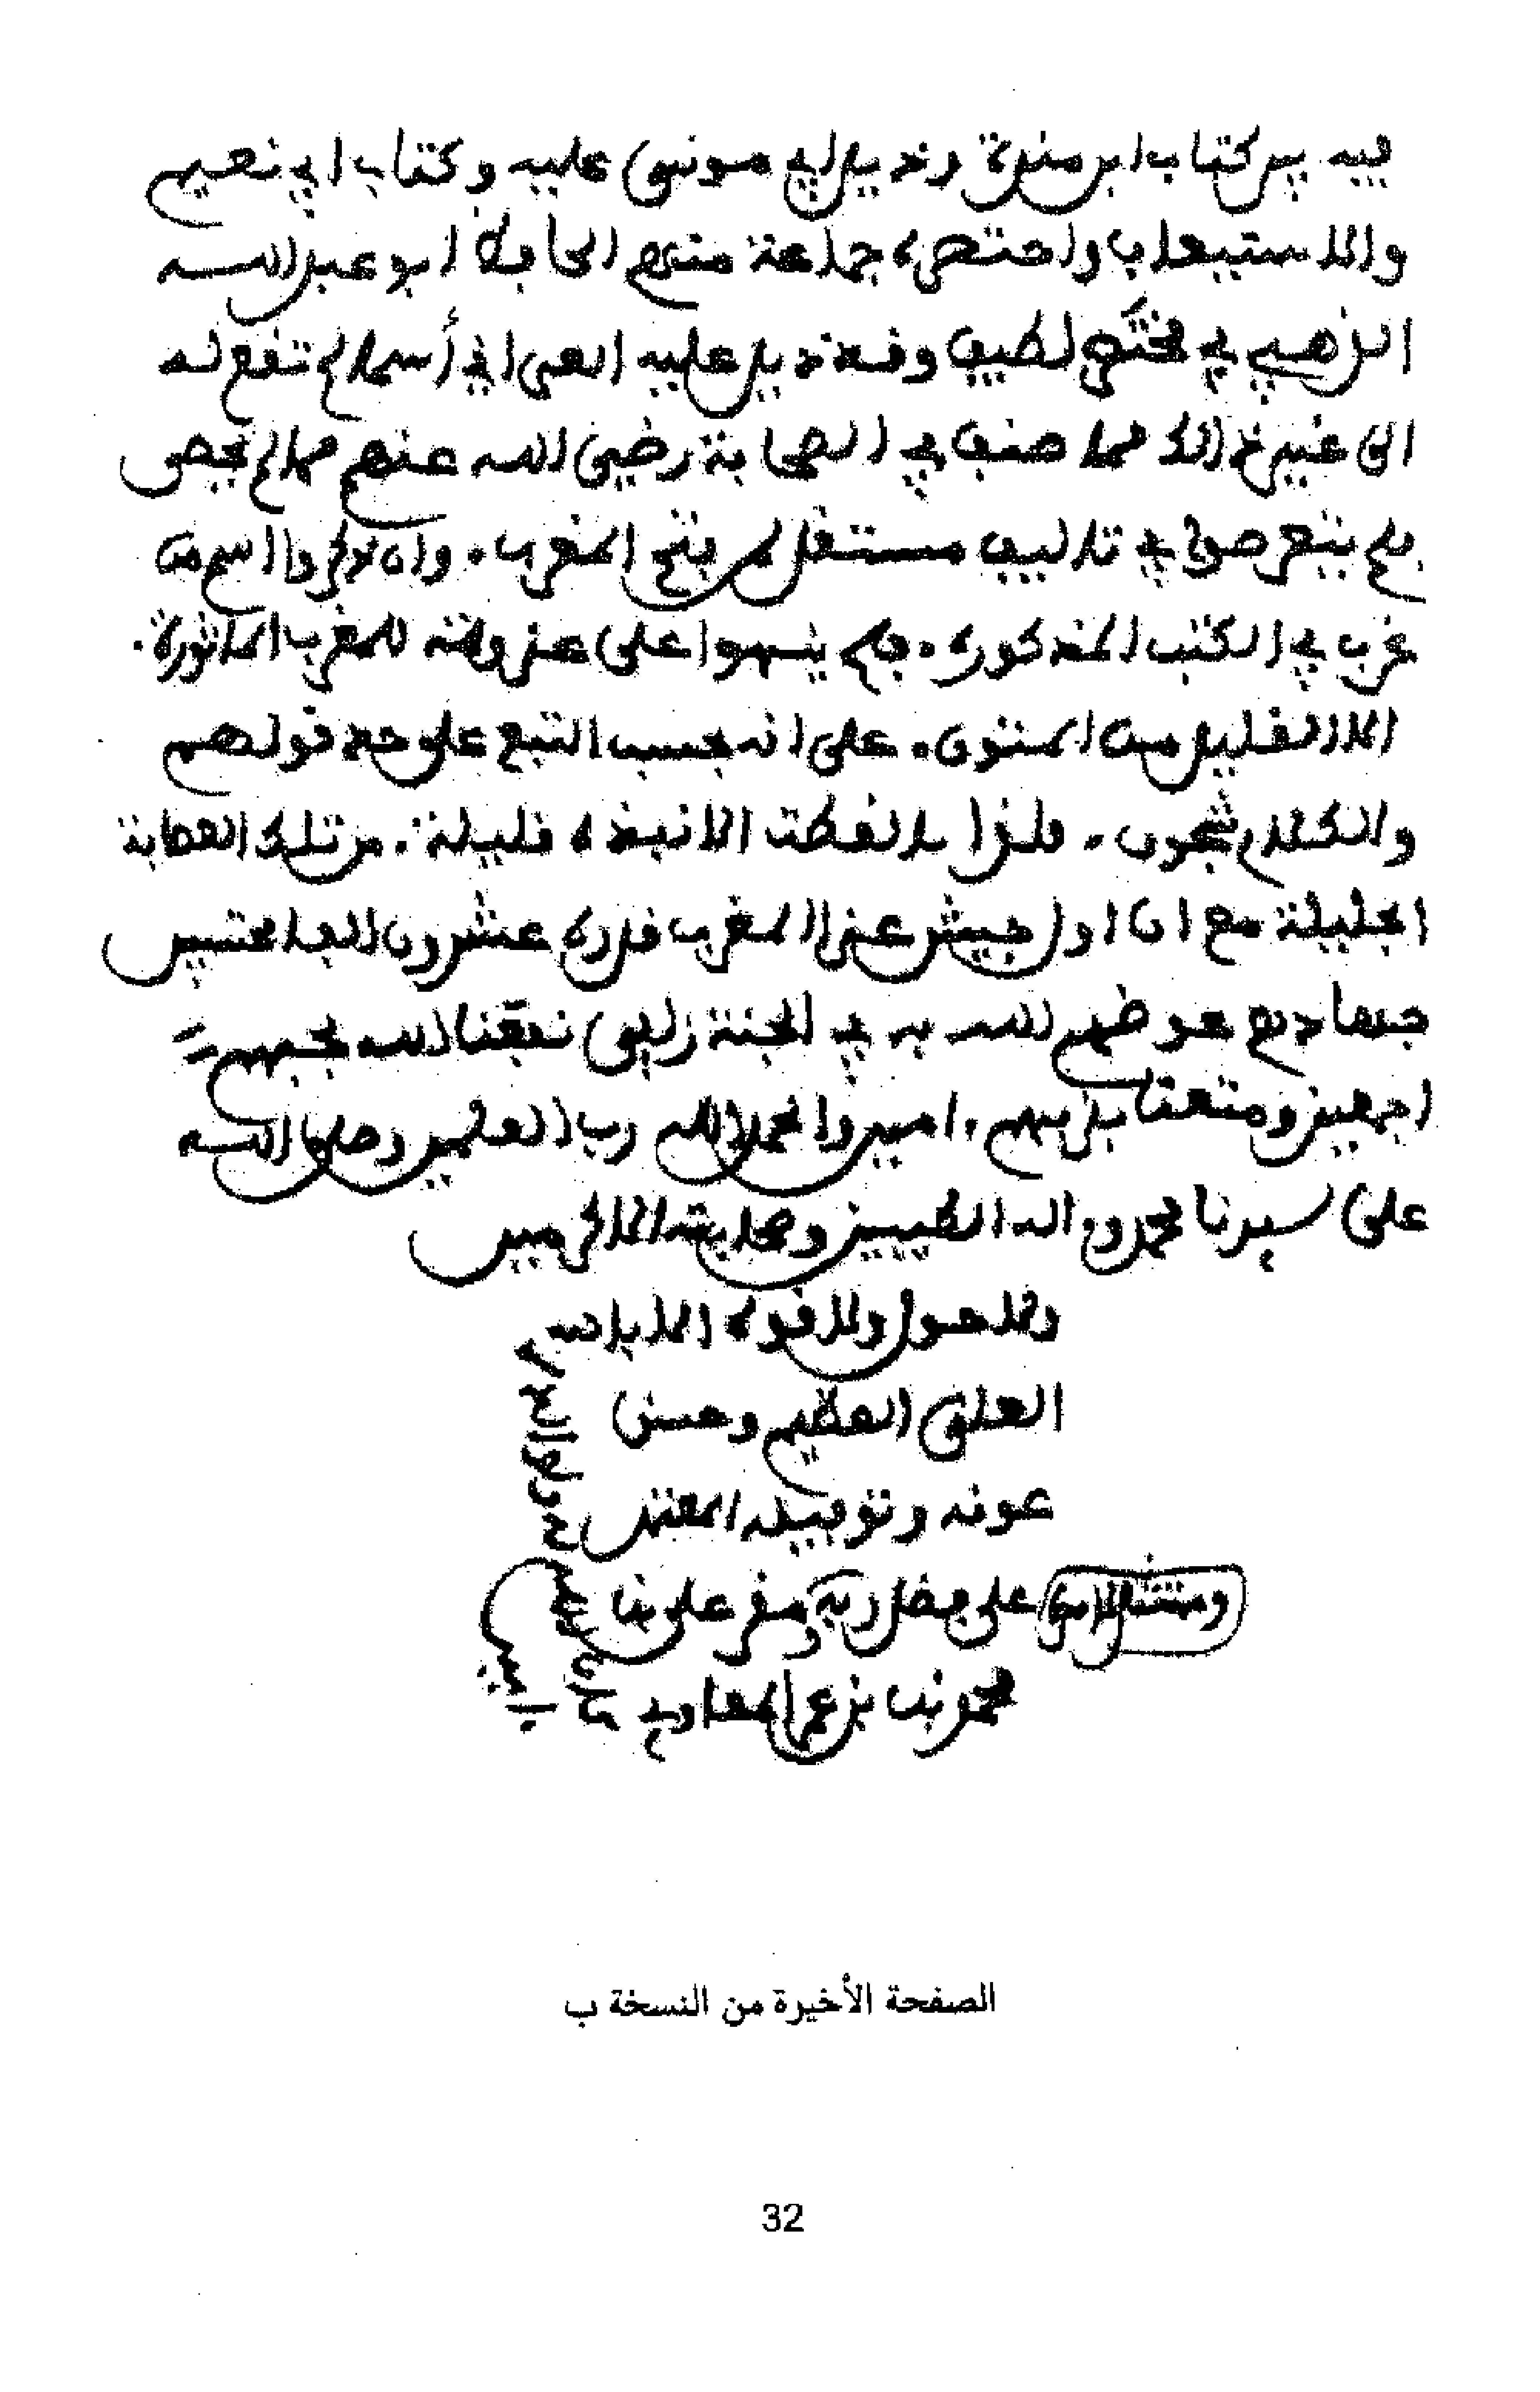 فيه بين كتاب ابن مندة وتذييل ابي موسى عليه وكتاب ابي نعيم
والاستيعاب واختصره جماعة منهم الحافظ ابو عبد الله
الذهبي في مختصر لطيف وقد ذيل عليه العراقي أسماء لم تقع له
الى غير ذالك مما صنف في الصحابة رضي الله عنهم مما لم يحصى
فلم يتعرضوا في تاليف مستقل لمن فتح المغرب. وان ذكروا اسم من
غرب في الكتب المذكوره. فلم ينبهوا على غزواته للمغرب الماثورة.
الا القليل من المتون. على انه بحسب التبع على حد قولهم
والكلام شجون. فلذا التقطت الانبذه قليلة. من تلك الصحابة
الجليلة مع ان اول جيش غزا المغرب قدره عشرون الفا محتسبين
جهادهم عوضهم الله به في الجنة زلفى نفعنا الله بحبهم
اجمعين ومتعنا بقربهم. امين والحمد لله رب العلمين وصلى الله
على سيدنا محمد وءاله الطيبين وصحابته الاكرمين
ولا حول ولا قوة الا بالله
العلي العظيم وحسن
عونه وتوفيقه
على فضل ربه
محمد بن
الصفحة الأخيرة من النسخة ب
32